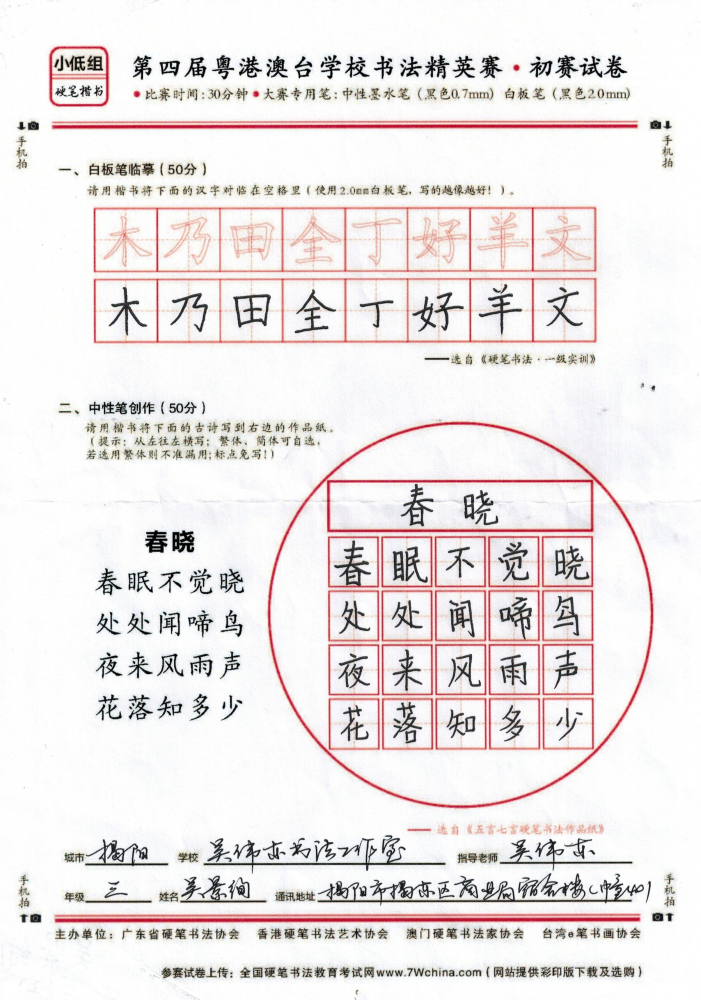 小低组
硬笔楷书
第四届粤港澳台学校书法精英赛·初赛试卷
●比赛时间:30分钟●大赛专用笔:中性墨水笔(黑色0.7mm) 白板笔(黑色2.0mm)
手机拍
手机拍
一、白板笔临摹(50分)
请用楷书将下面的汉字对临在空格里(使用2.0mm白板笔,写的越像越好!)。
木乃田全丁好羊文
木乃田全丁好羊文
——选自《硬笔书法·一级实训》
二、中性笔创作(50分)
请用楷书将下面的古诗写到右边的作品纸。
(提示:从左往左横写;繁体、简体可自选,
若选用繁体则不准漏用;标点免写!)
春晓
春眠不觉晓
处处闻啼鸟
夜来风雨声
花落知多少
春晓
春眠不觉晓
处处闻啼鸟
夜来风雨声
花落知多少
——选自《五言七言硬笔书法作品纸》
城市 揭阳 学校 吴伟东书法工作室 指导老师 吴伟东
年级 三 姓名 吴景绚 通讯地址 揭阳市揭东区商业局宿舍楼
手机拍
手机拍
主办单位:广东省硬笔书法协会 香港硬笔书法艺术协会 澳门硬笔书法家协会 台湾e笔书画协会
参赛试卷上传:全国硬笔书法教育考试网www.7Wchina.com(网站提供彩印版下载及选购)